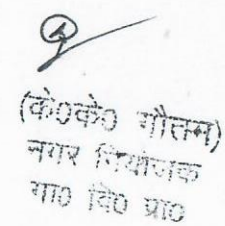 (के०के० गौतम)
नगर नियोजक
गा० वि० प्रा०